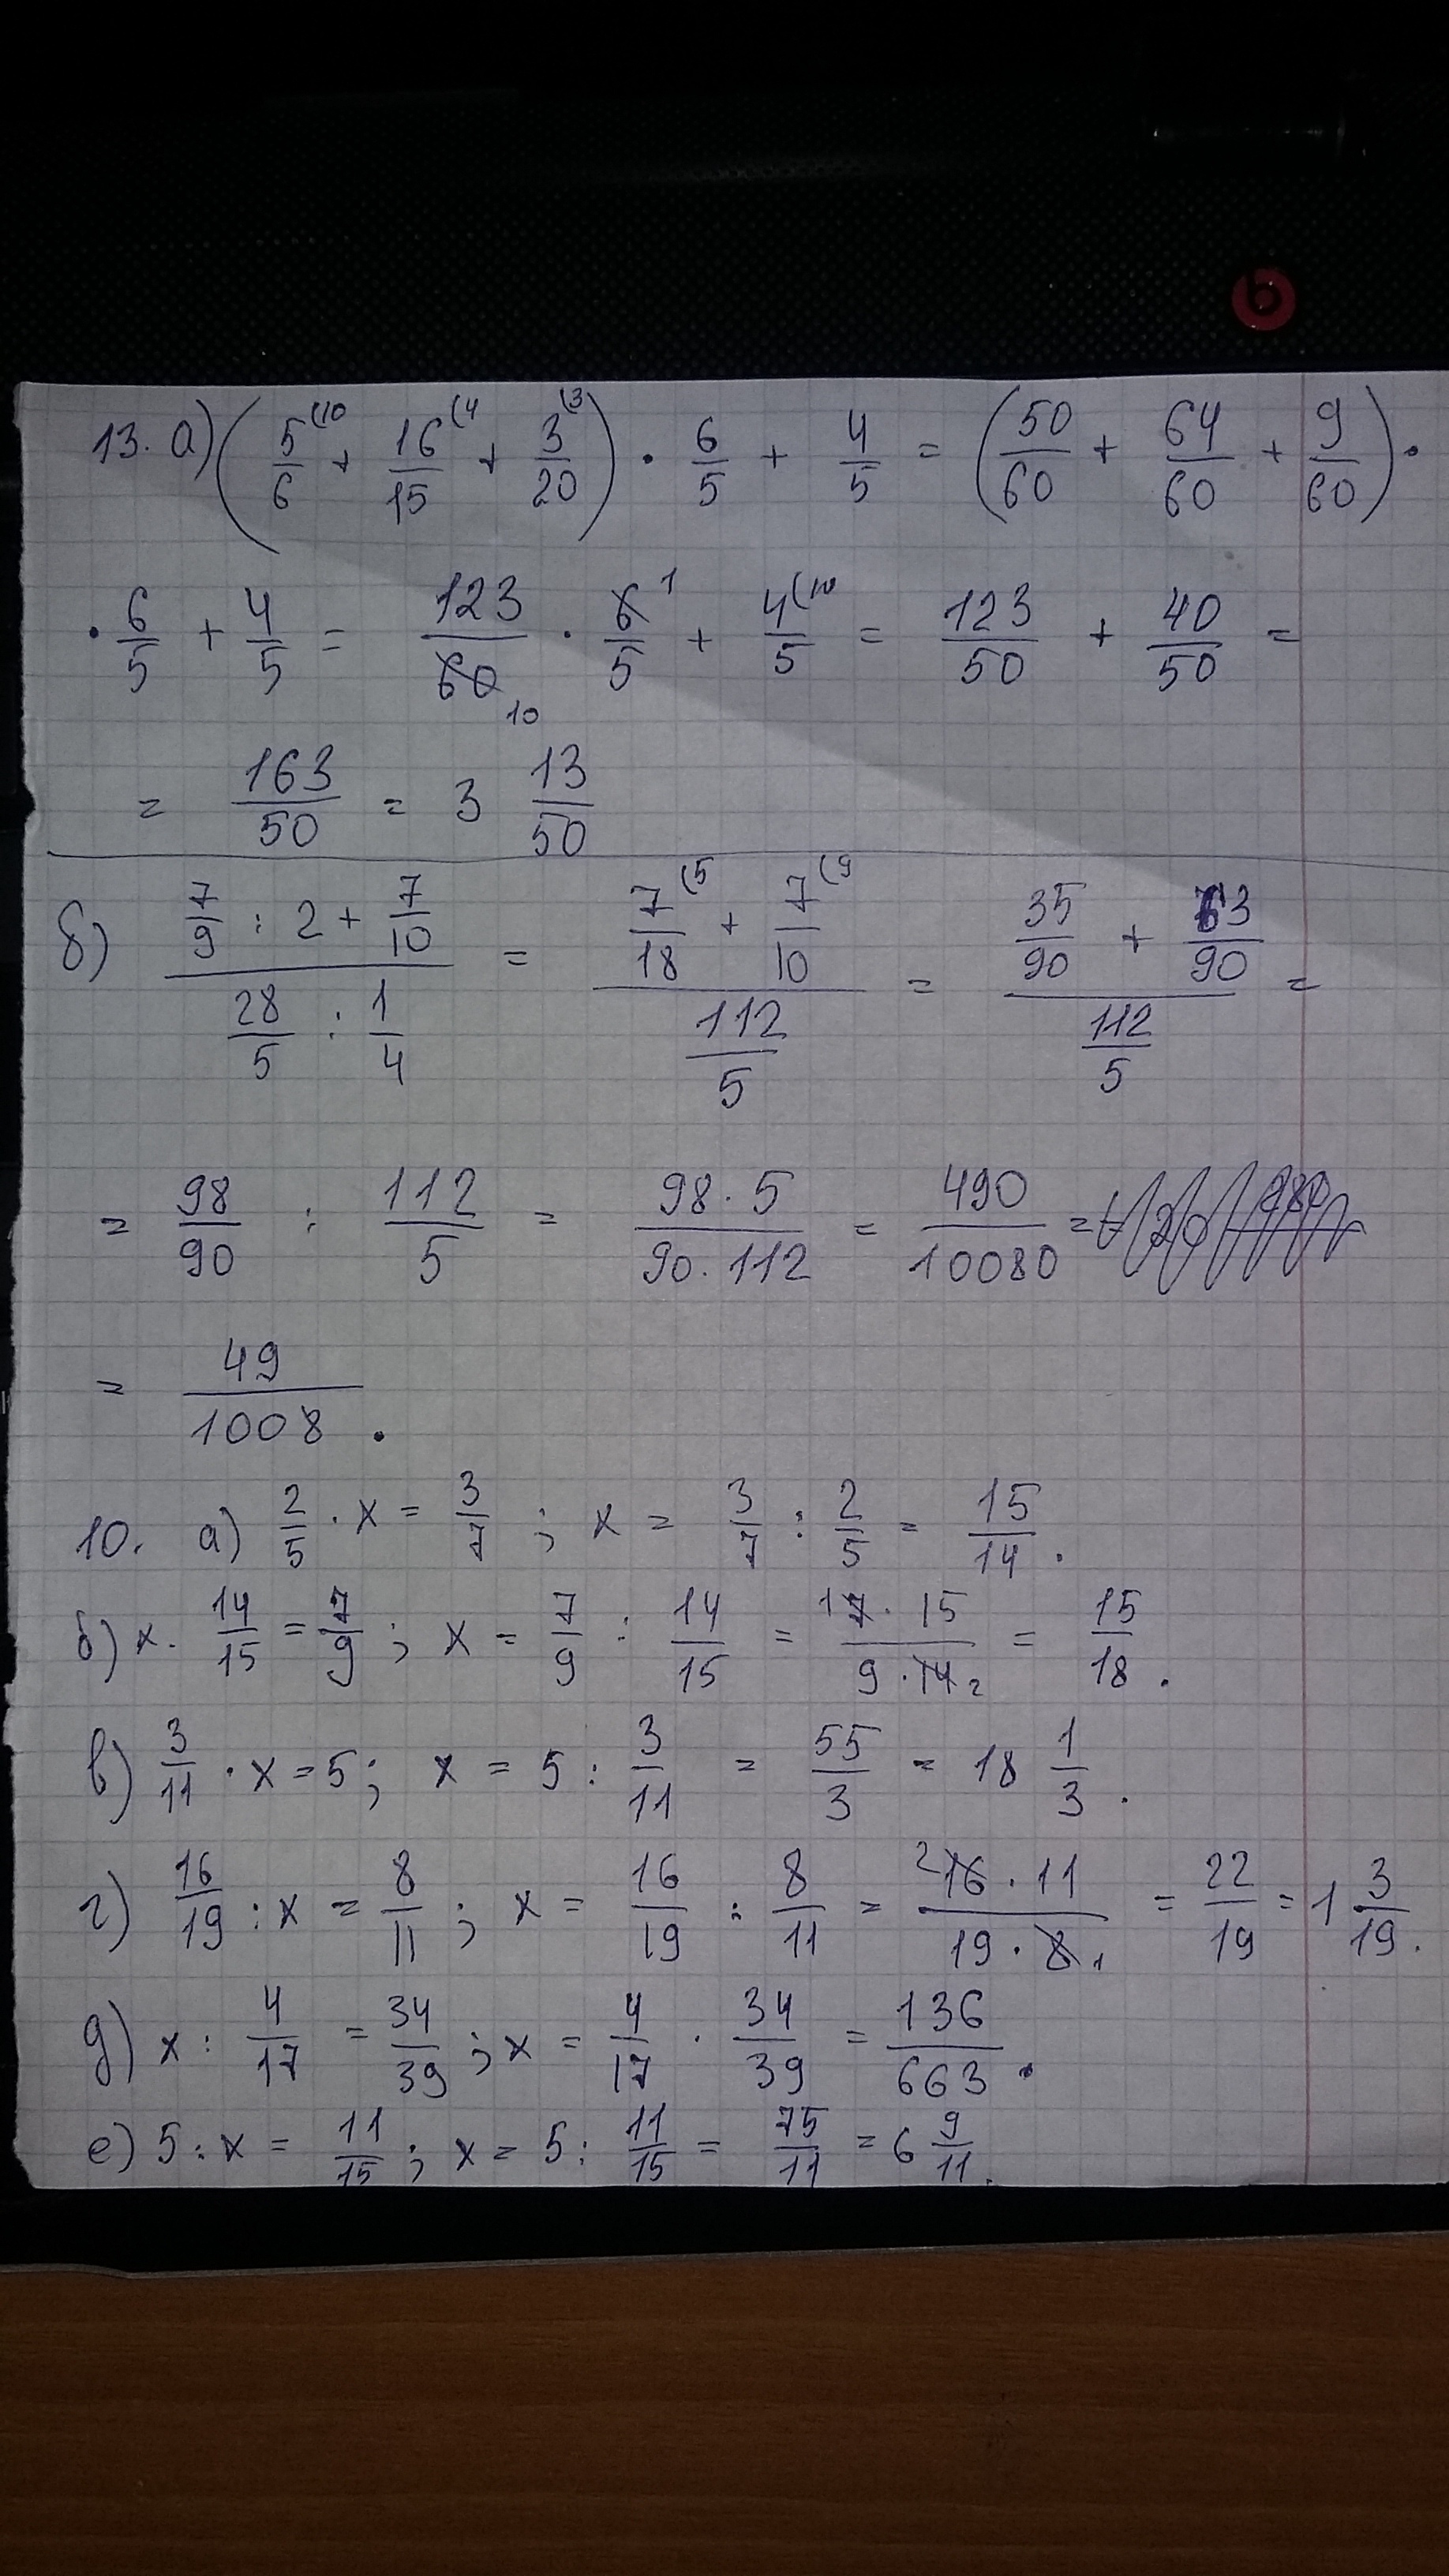 b
13. а) (5/6 (10 + 16/15 (4 + 3/20 (3) · 6/5 + 4/5 = (50/60 + 64/60 + 9/60) ·
· 6/5 + 4/5 = 123/60 10 · 6/5 1 + 4/5 (10 = 123/50 + 40/50 =
= 163/50 = 3 13/50
б) (7/9 : 2 + 7/10)/(28/5 : 1/4) = (7/18 (5 + 7/10 (9)/(112/5) = (35/90 + 63/90)/(112/5) =
= 98/90 : 112/5 = 98 · 5/90 · 112 = 490/10080 =
= 49/1008 .
10. а) 2/5 · x = 3/7 ; x = 3/7 : 2/5 = 15/14 .
б) x · 14/15 = 7/9 ; x = 7/9 : 14/15 = 1 7 · 15/9 · 14 2 = 15/18 .
в) 3/11 · x = 5 ; x = 5 : 3/11 = 55/3 = 18 1/3 .
г) 16/19 : x = 8/11 ; x = 16/19 : 8/11 = 2 16 · 11/19 · 8 1 = 22/19 = 1 3/19 .
д) x : 4/17 = 34/39 ; x = 4/17 · 34/39 = 136/663 .
е) 5 : x = 11/15 ; x = 5 : 11/15 = 75/11 = 6 9/11 .